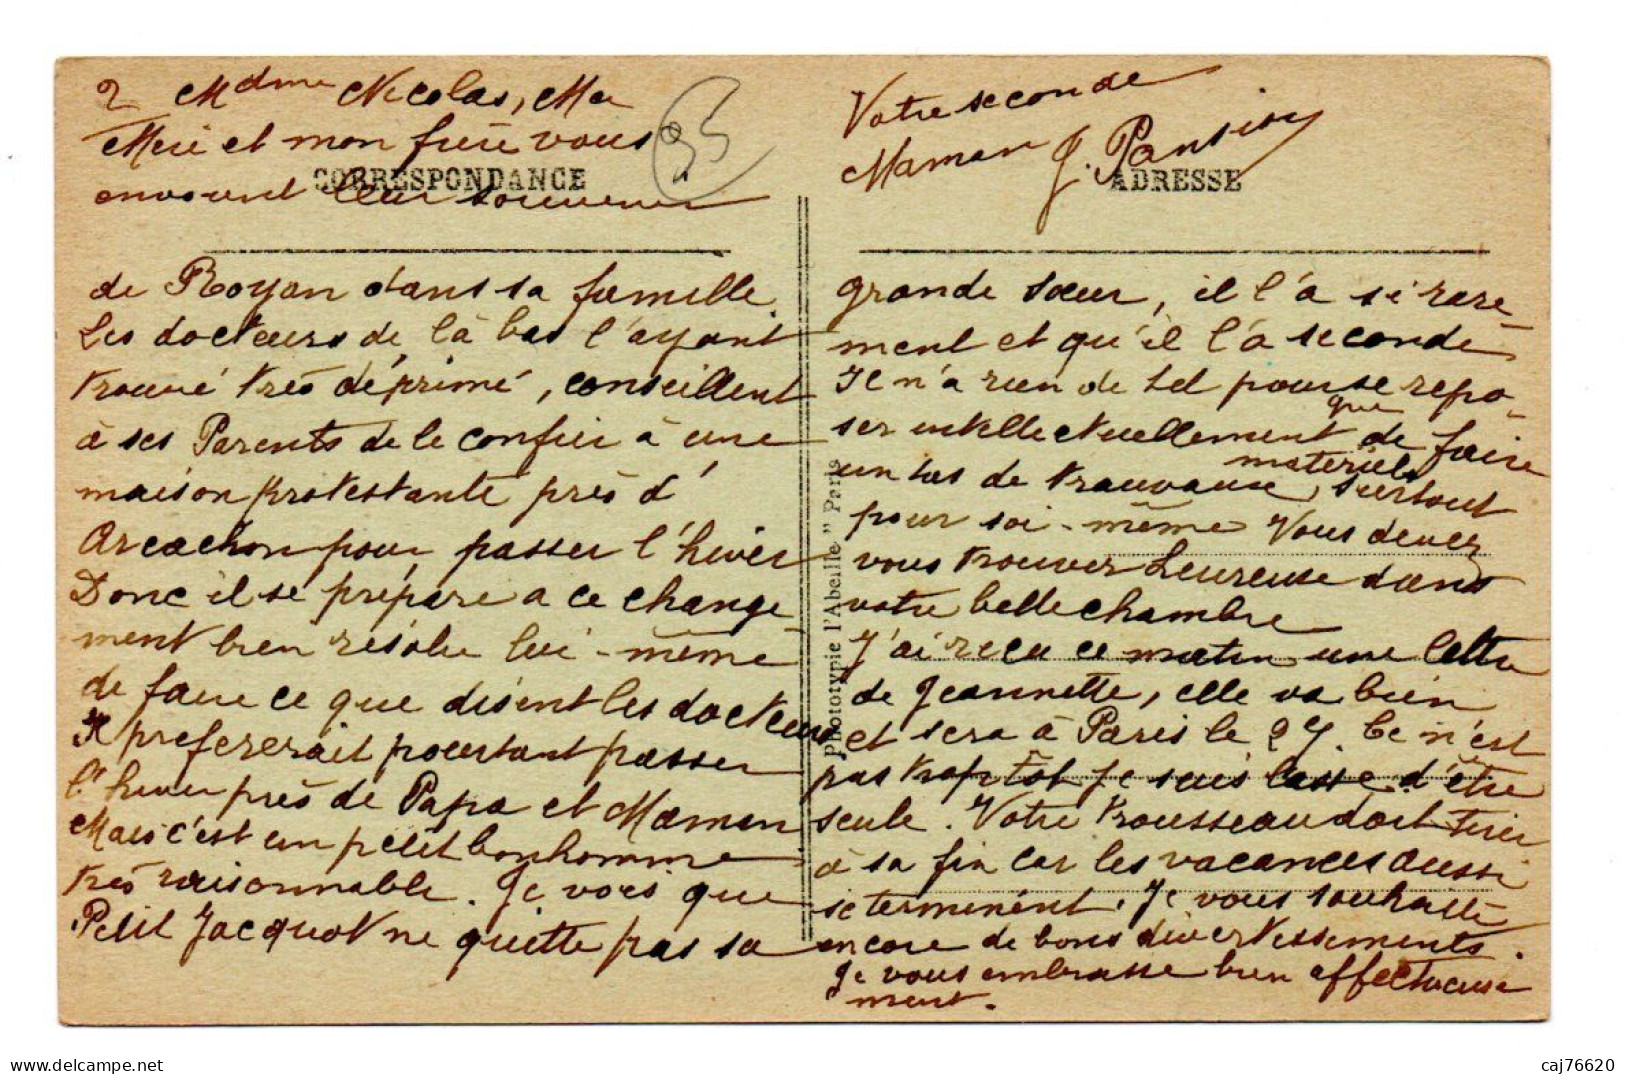 2 Mdme Nicolas, Ma
Mère et mon frère vous
envoient leur souvenir
CORRESPONDANCE
95
de Royan dans sa famille
Les docteurs de là bas l'ayant
trouvé très déprimé, conseillent
à ses Parents de le confier à une
maison protestante près d'
Arcachon pour passer l'hiver
Donc il se prépare a ce change
ment bien résolu lui-même
de faire ce que disent les docteurs
Il prefererait pourtant passer
l'hiver près de Papa et Maman
Mais c'est un petit bonhomme
très raisonnable. Je vois que
Petit Jacquot ne quitte pas sa
Phototypie l'Abeille" Paris
Votre seconde
Maman J.
ADRESSE
grande sœur, il l'a si rare-
ment et qu'il l'a seconde
Il n'a rien de tel pour se repo-
ser intellectuellement que de faire
un tas de travaux materiels, surtout
pour soi-même Vous devez
vous trouver heureuse dans
votre belle chambre
J'ai reçu ce matin une lettre
de Jeannette, elle va bien
et sera à Paris le 27. Ce n'est
pas trop tôt je suis lasse d'être
seule. Votre trousseau doit tirer
à sa fin car les vacances aussi
se terminent. Je vous souhaite
encore de bons divertissements.
Je vous embrasse bien affectueuse
ment.
caj76620